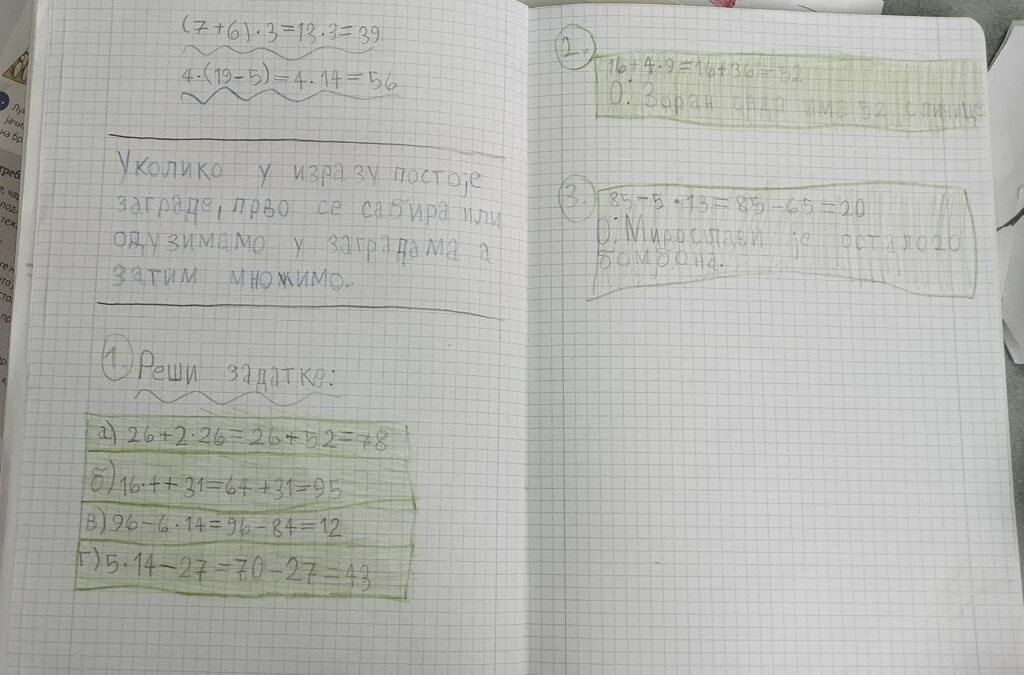 (7+6)·3=13·3=39
4·(19-5)=4·14=56
Уколико у изразу постоје
заграде, прво се сабира или
одузимамо у заградама а
затим множимо.
1. Реши задатке:
а) 26+2·26=26+52=78
б) 16·4+31=64+31=95
в) 96-6·14=96-84=12
г) 5·14-27=70-27=43
2.
16+4·9=16+36=52
О: Зоран сада има 52 сличице
3.
85-5·13=85-65=20
О: Мирослави је остало 20
бомбона.